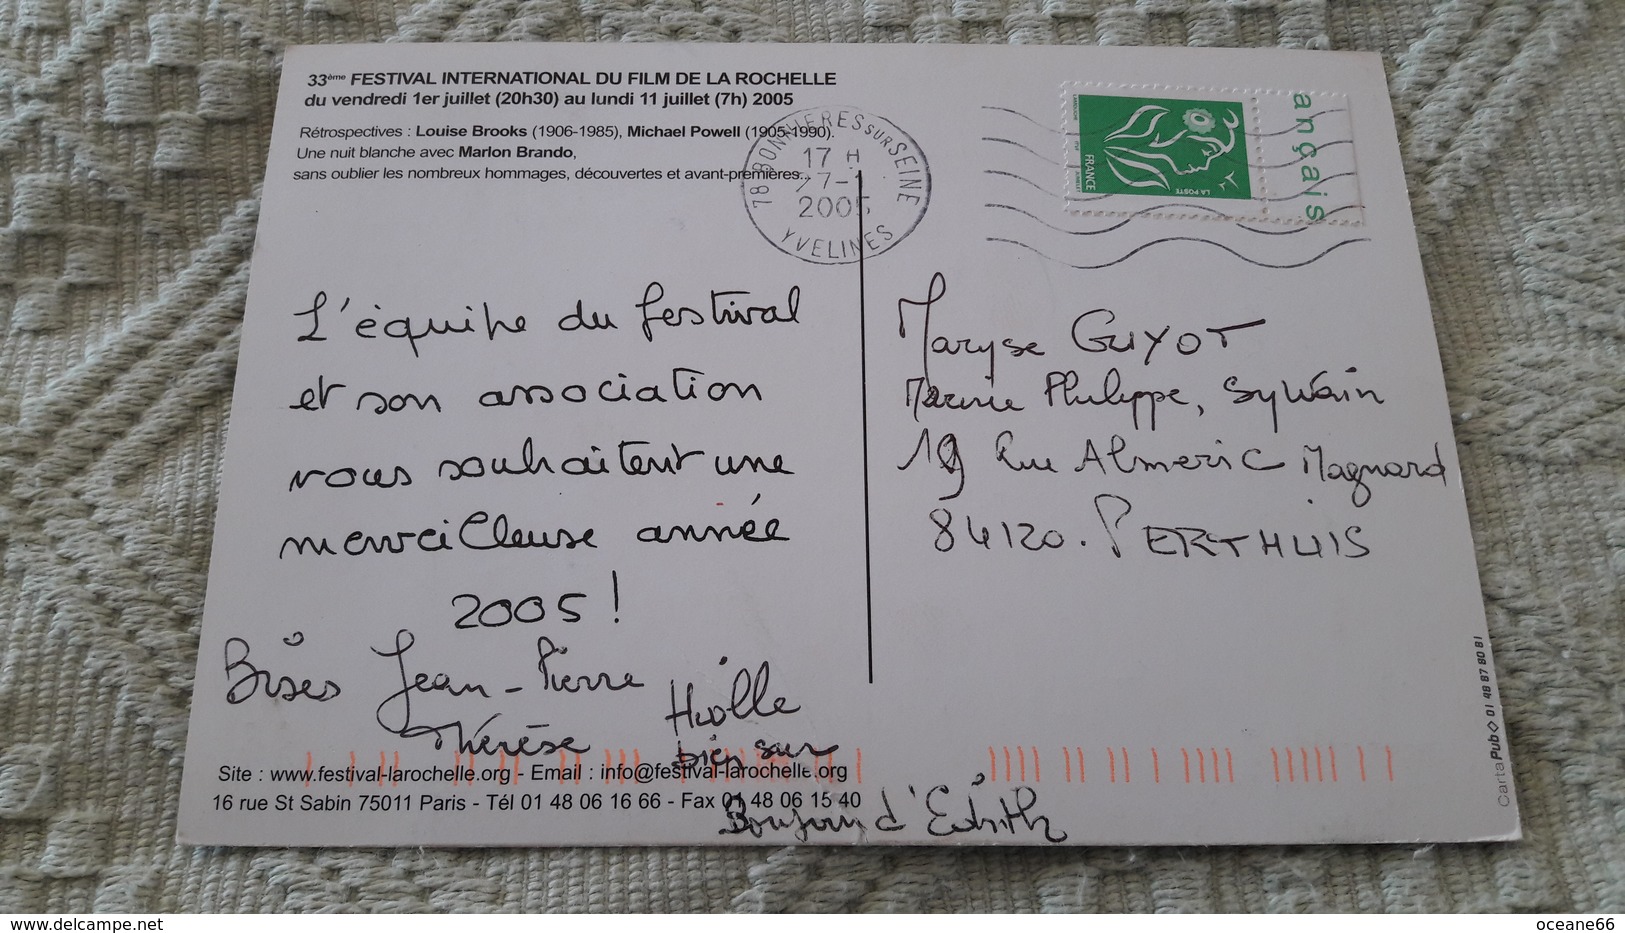 33ème FESTIVAL INTERNATIONAL DU FILM DE LA ROCHELLE
du vendredi 1er juillet (20h30) au lundi 11 juillet (7h) 2005
Rétrospectives : Louise Brooks (1906-1985), Michael Powell (1905-1990).
Une nuit blanche avec Marlon Brando,
sans oublier les nombreux hommages, découvertes et avant-premières...
78 BONNIERES SUR SEINE
17 H
27-1
2005
YVELINES
LA POSTE
FRANCE
ançais
L'équipe du festival
et son association
vous souhaitent une
merveilleuse année
2005 !
Bises Jean-Pierre
Thérèse
bien sur
Bonjour d'Edith
Maryse GUYOT
Philippe, Sylvain
19 Rue Almeric Magnard
84120. PERTHUIS
Site : www.festival-larochelle.org - Email : info@festival-larochelle.org
16 rue St Sabin 75011 Paris - Tél 01 48 06 16 66 - Fax 01 48 06 15 40
CartaPub 01 48 87 80 81
oceane66